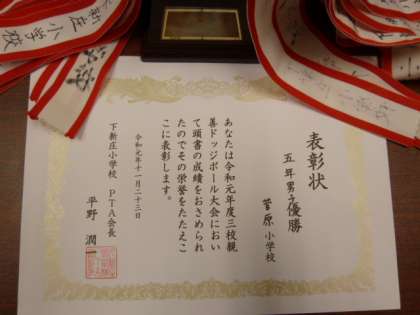 表彰状
五年男子優勝
菅原小学校
あなたは令和元年度三校親
善ドッジボール大会におい
て頭書の成績をおさめられ
たのでその栄誉をたたえこ
こに表彰します。
令和元年十一月二十三日
下新庄小学校 PTA会長
平野 潤
下新庄小学校